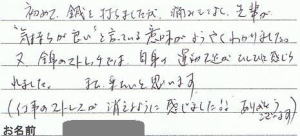 初めて、鍼を打ちましたが、痛みもなく、先輩が
"気持ちが良い"と言っている意味がようやくわかりました。
又、全身のストレッチでは、自身の運動不足がひしひしと感じら
れました。 また来たいと思います
(仕事のストレスが消えたように感じました!! ありがとう
ございます)
お名前